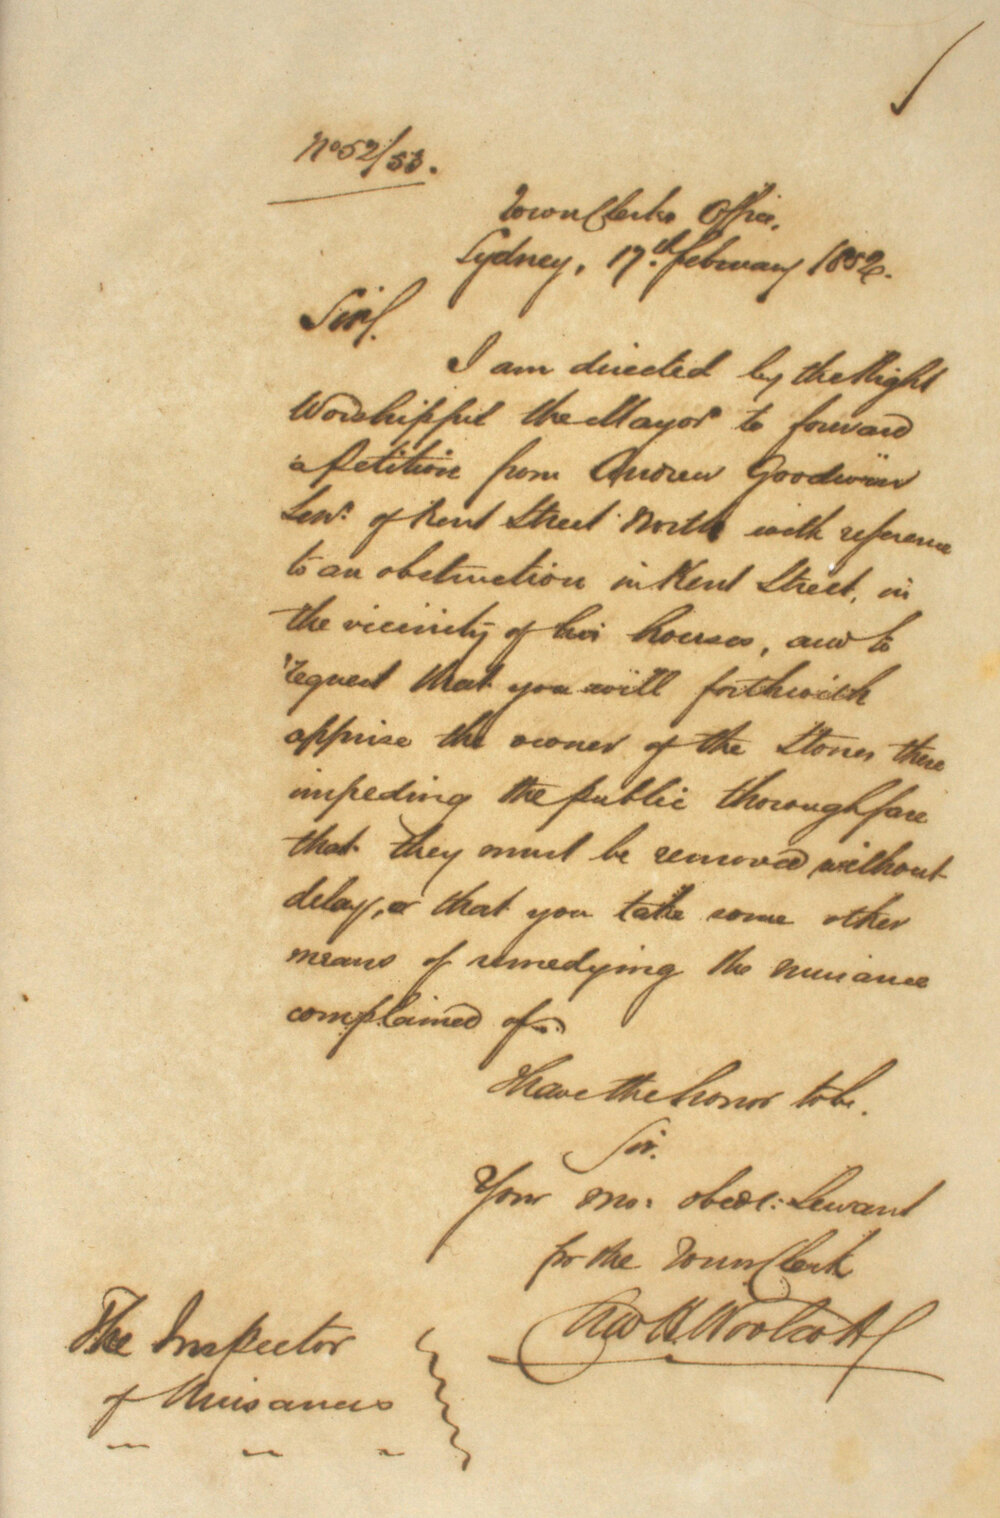 No 52/53.
Town Clerks Office,
Sydney, 17th February 1852.
Sir,
I am directed by the Right
Worshipful the Mayor to forward
a Petition from Andrew Goodwin
Senr. of Kent Street North with reference
to an obstruction in Kent Street, in
the vicinity of his houses, and to
request that you will forthwith
apprise the owner of the Stones there
impeding the public thoroughfare
that they must be removed without
delay, or that you take some other
means of remedying the nuisance
complained of.
I have the honor to be.
Sir.
Your mo: obedt: Servant
for the Town Clerk
Woolcott
The Inspector
of Nuisances